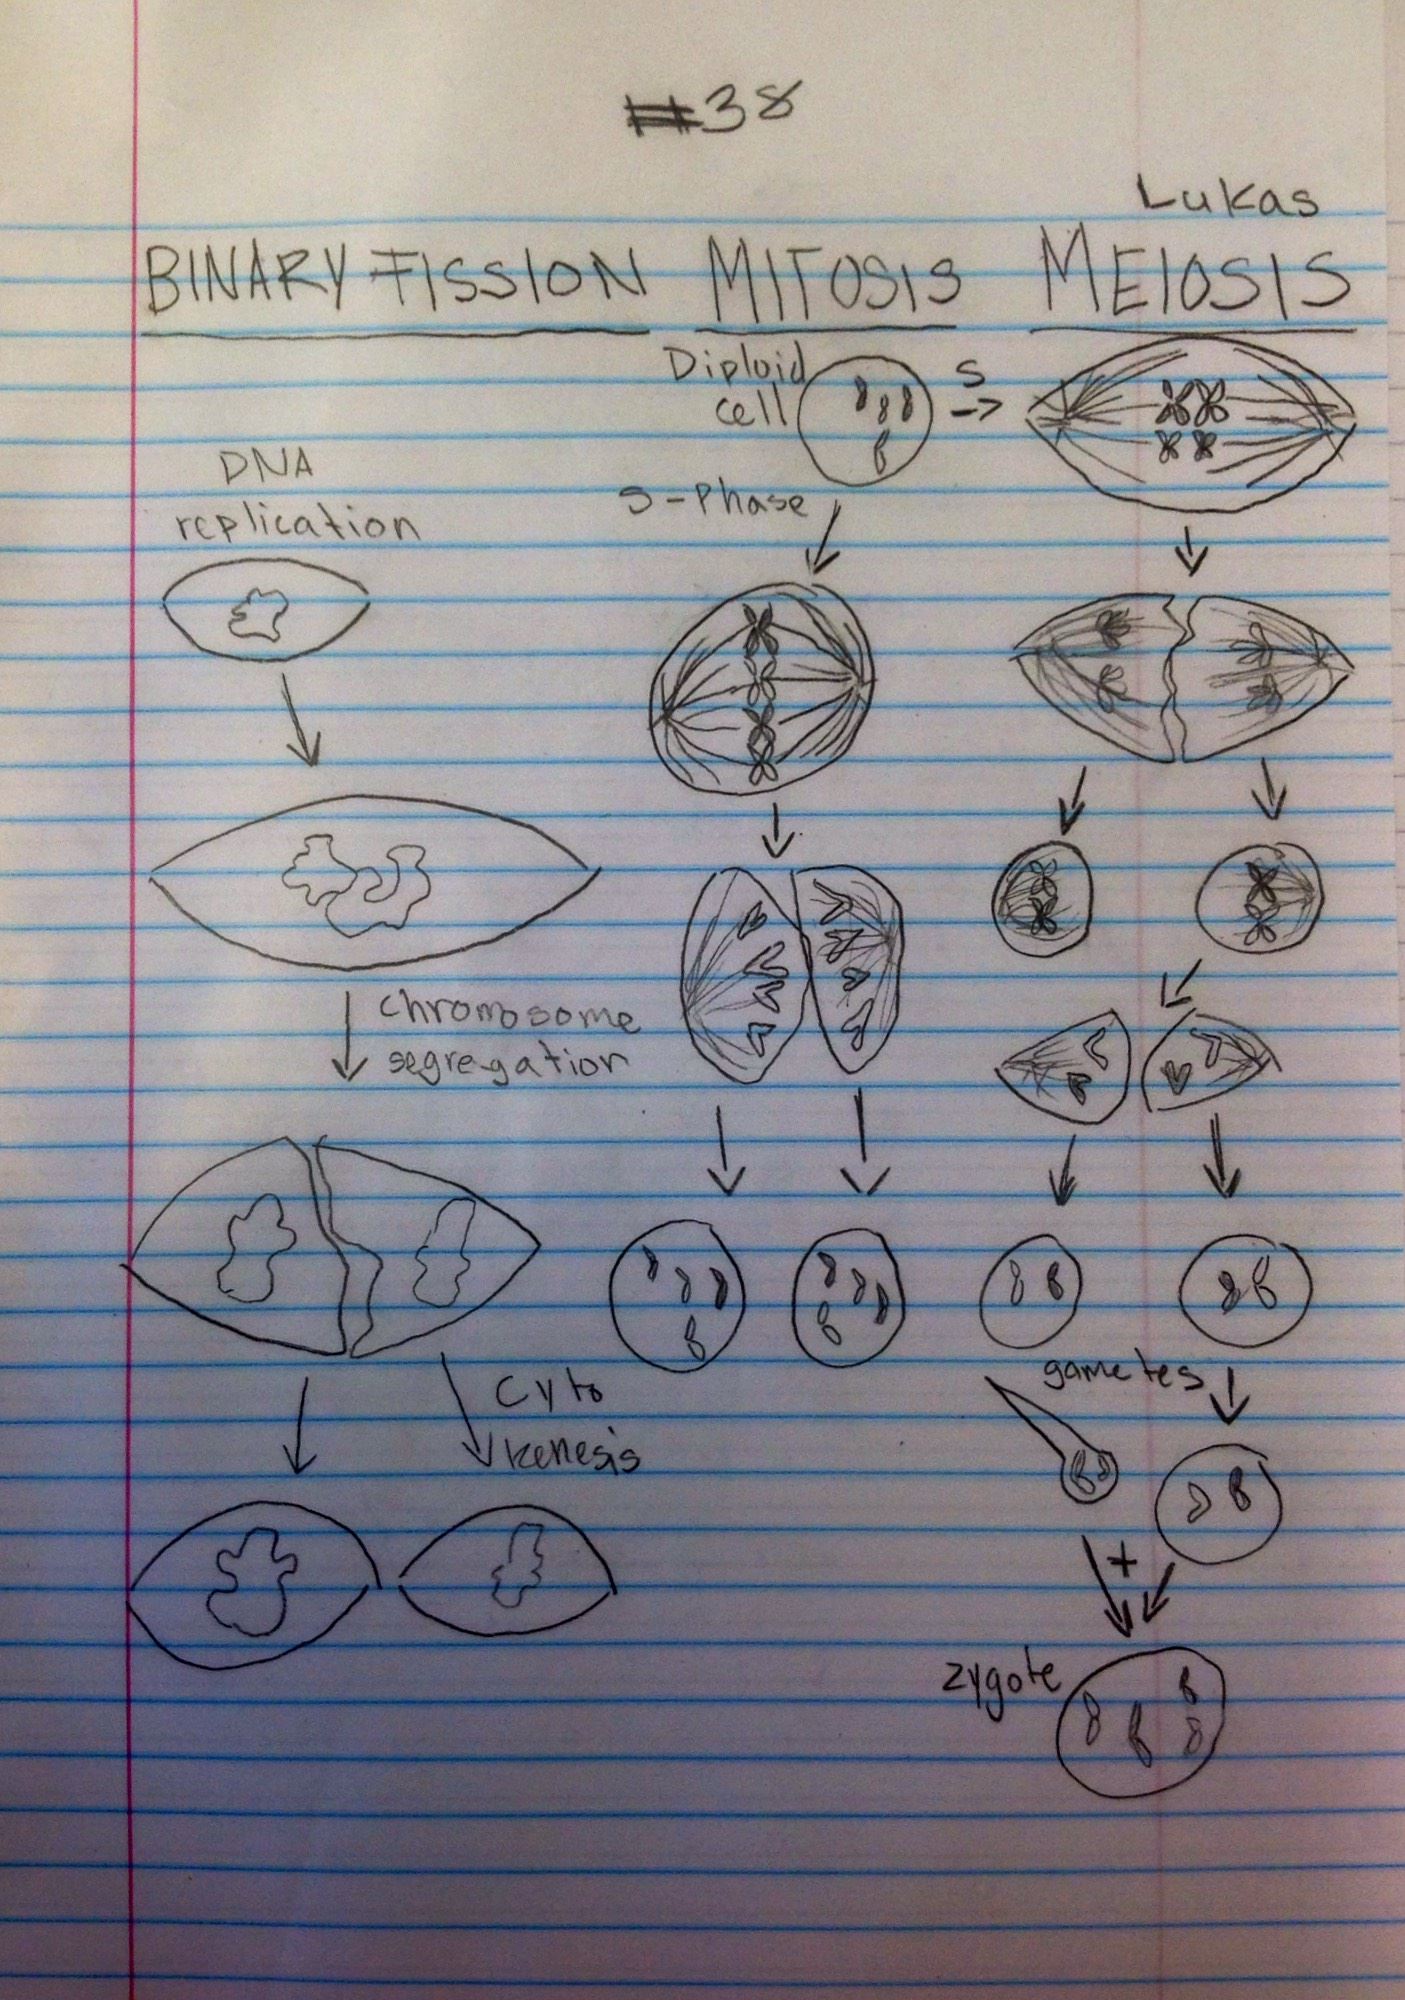 #38
Lukas
BINARY FISSION MITOSIS MEIOSIS
Diploid
cell
S
->
DNA
replication
S-Phase
chromosome
segregation
Cyto
kenesis
gametes
+
zygote